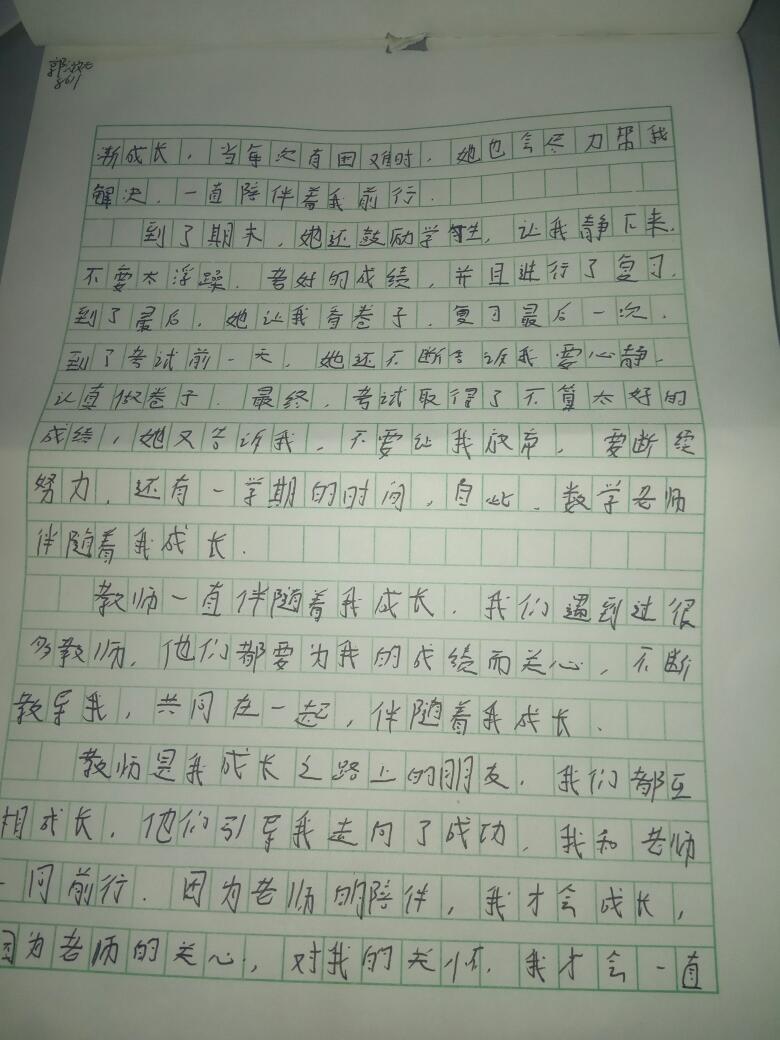 渐成长，当每次有困难时，她也会尽力帮我
解决，一直陪伴着我前行．
到了期末，她还鼓励学生，让我静下来，
不要太浮躁．考好的成绩，并且进行了复习．
到了最后，她让我看卷子，复习最后一次．
到了考试前一天，她还不断告诉我要心静．
认真做卷子．最终，考试取得了不算太好的
成绩，她又告诉我，不要让我放弃，要断续
努力，还有一学期的时间，自此，数学老师
伴随着我成长．
教师一直伴随着我成长．我们遇到过很
多教师，他们都要为我的成绩而关心，不断
教导我，共同在一起，伴随着我成长．
教师是我成长之路上的朋友．我们都互
相成长，他们引导我走向了成功，我和老师
一同前行．因为老师的陪伴，我才会成长，
因为老师的关心，对我的关怀．我才会一直